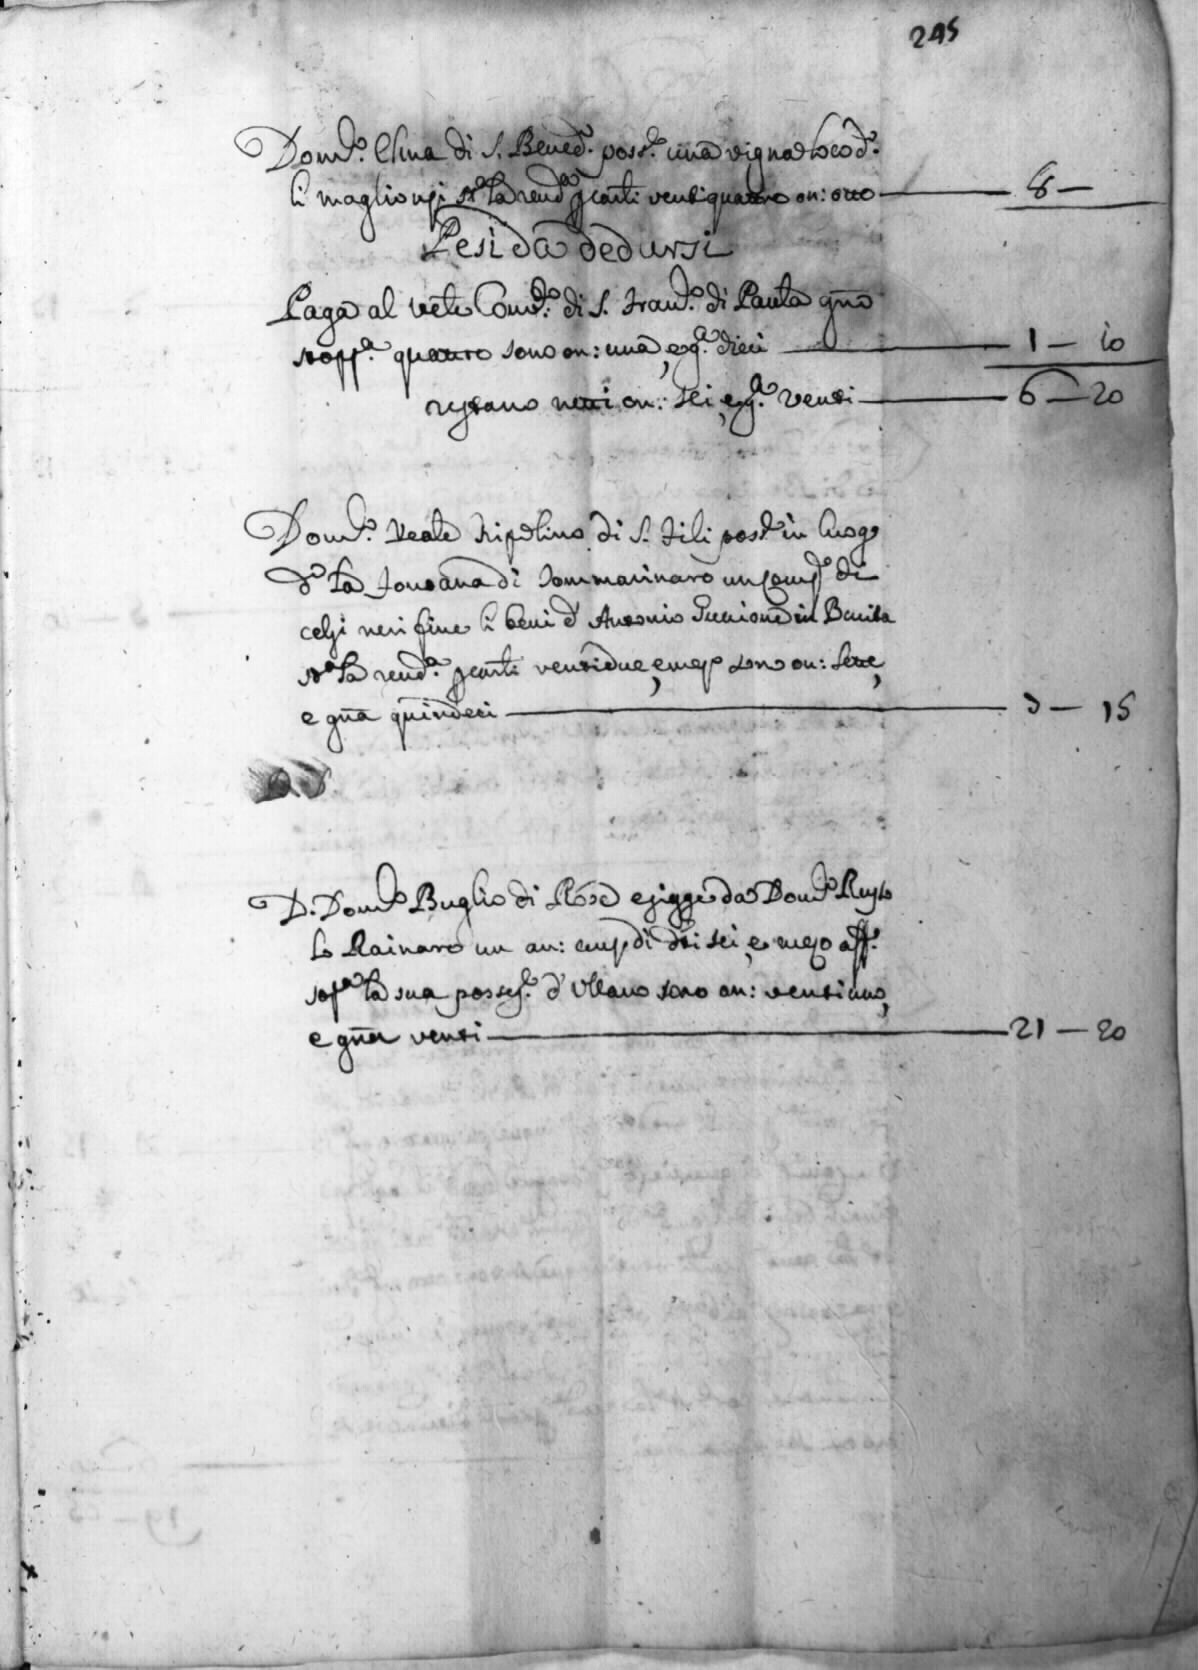 245
Dom.co Chua di S. Bened.o poss.e una vigna loco d.o
li maglionji st.a la rend.a p carli ventiquattro on: otto — 8 —
Pesi da dedursi
Paga al Ven.le Conv.to di S. Fran.co di Paula gna
sopp.a quattro sono on: una, e g.a dieci — 1 — 10
restano netti on: sei, e g.a venti — 6 — 20
Dom.co Reale di S. Fili poss.e in luogo
d.o la fontana di Sommarinaro un di
celzi neri fine li beni d' Antonio in
st.a la rend.a p carli ventidue, e mezo sono on: sette,
e gna quindeci — 7 — 15
D. Dom.co Buglio di Rose esigge da Dom.co
Lo Rainaro un an: di d.ti sei, e mezo aff.
sop.a la sua posses.e d' sono on: ventiuno,
e gna venti — 21 — 20